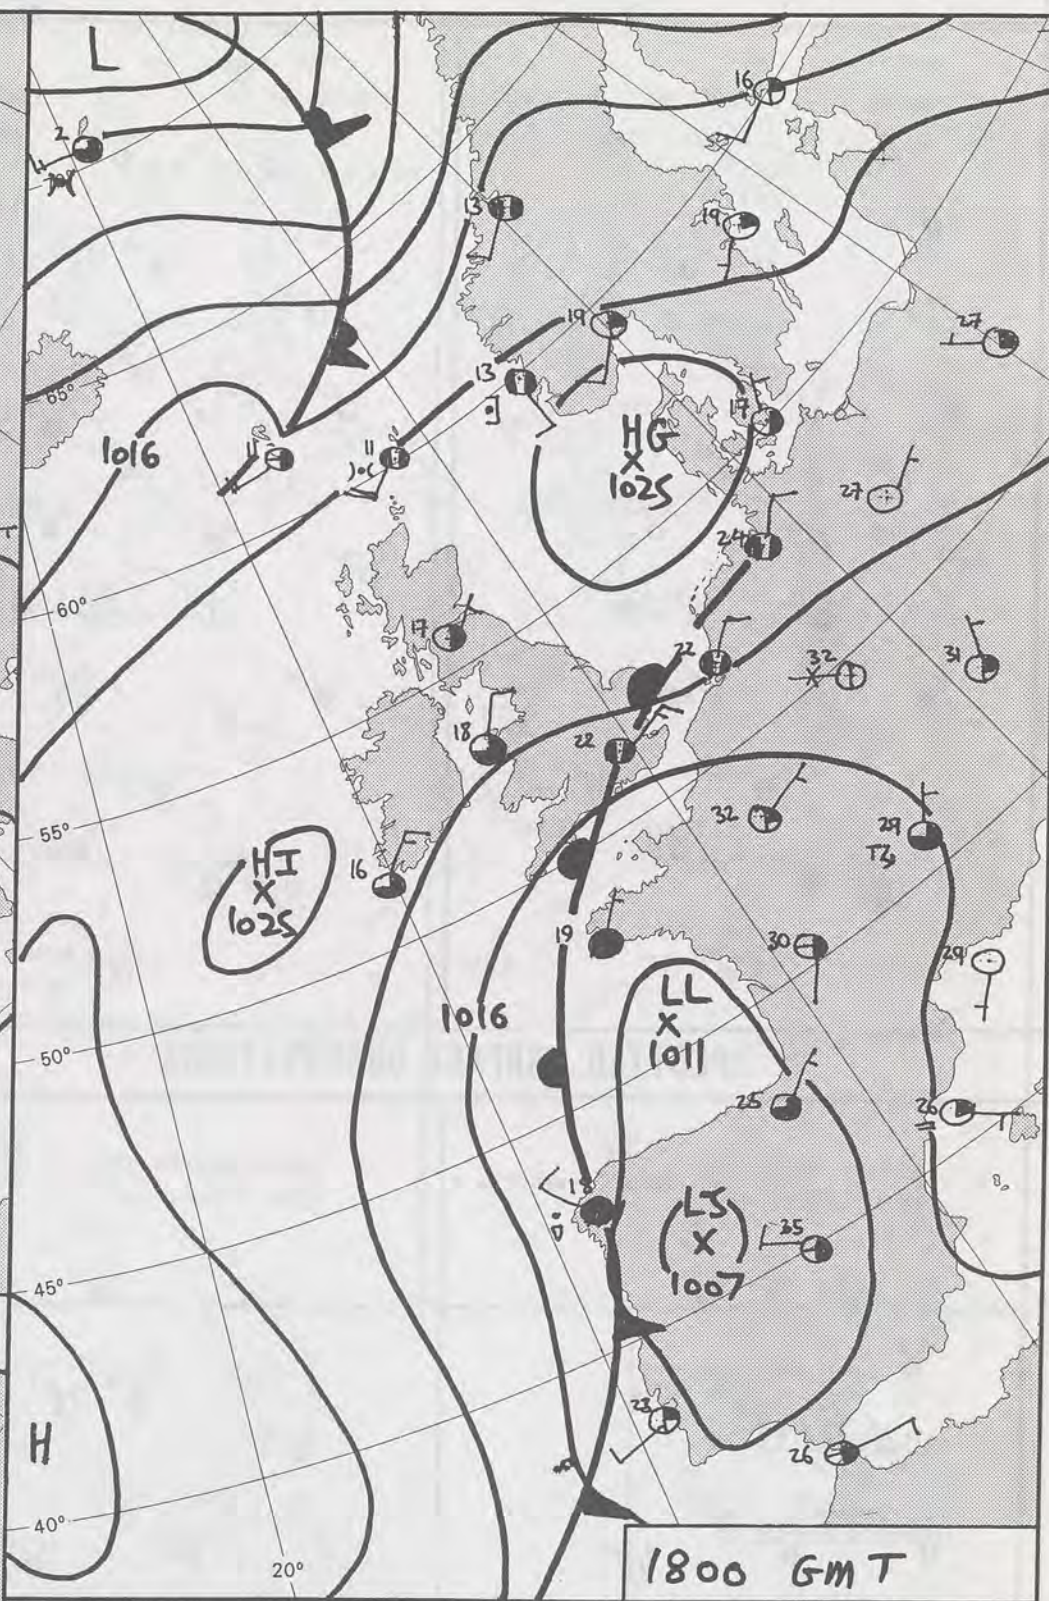 L
16
2
13
19
19
27
65°
13
HG
X
1025
17
1016
11
11
27
24
60°
17
22
32
31
18
22
55°
HI
X
1025
16
32
29
19
30
29
1016
LL
X
1011
50°
25
26
18
(LJ)
X
1007
35
45°
H
23
26
40°
20°
1800 GMT